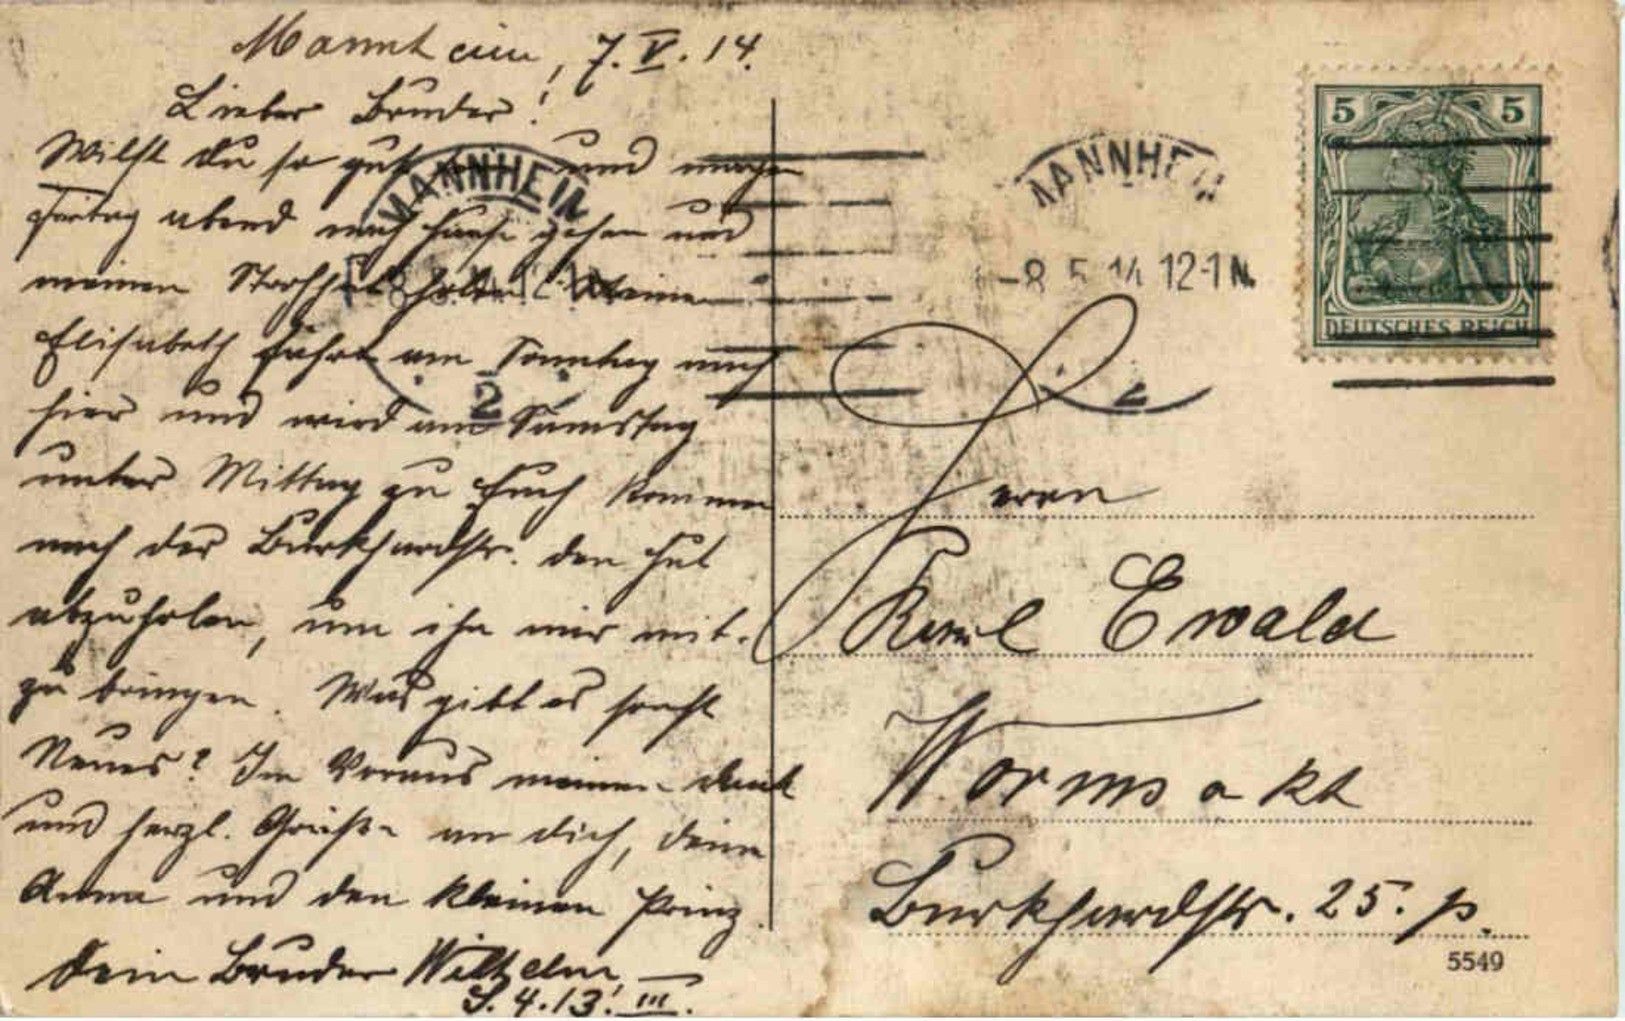 Mannheim, 7. V. 14.
Lieber Bruder!
Willst du so gut und morgen
Freitag abend nach Hause gehen und
meinen Strohhut holen. Meine
Elisabeth fährt am Sonntag nach
hier und wird am Samstag
unter Mittag zu Euch kommen
nach der Burkhardstr. den Hut
abzuholen, um ihn mir mit-
zu bringen. Was gibt es sonst
Neues? Im Voraus meinen Dank
und herzl. Grüße an dich, deine
Anna und den kleinen Prinz.
Dein Bruder Wilhelm,
S. 4. 13. III.
MANNHEIM
2
MANNHEIM
-8.5.14 12-1N
2
5 5
DEUTSCHES REICH
Herrn
Karl Ewald
Worms a Rh
Burkhardstr. 25. p.
5549